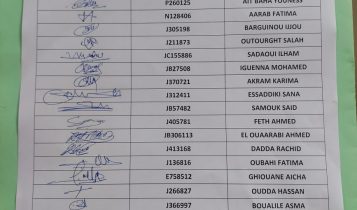 P260125 AIT BAHA YOUNESS
N128406 AARAB FATIMA
J305198 BARGUINOU IJJOU
J211873 OUTOURGHT SALAH
JC155886 SADAOUI ILHAM
JB27508 IGUENNA MOHAMED
J370721 AKRAM KARIMA
J312411 ESSADDIKI SANA
JB57482 SAMOUK SAID
J405781 FETH AHMED
JB306113 EL OUAARABI AHMED
J413168 DADDA RACHID
J136816 OUBAHI FATIMA
E758512 GHIOUANE AICHA
J266827 OUDDA HASSAN
J366997 BOUALILE ASMA